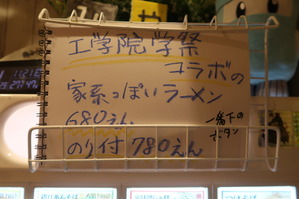 工学院学祭
コラボの
家系っぽいラーメン
680えん
一番下の
ボタン
のり付780えん